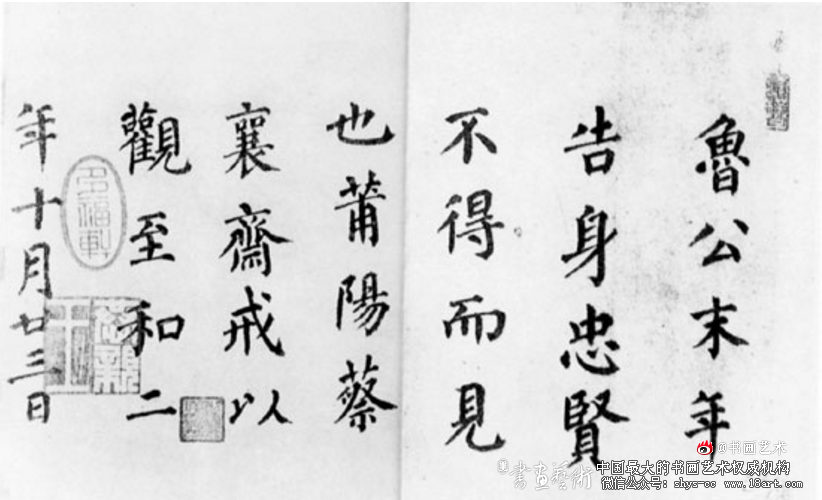 魯公末年
告身忠賢
不得而見
也莆陽蔡
襄齋戒以
觀至和二
年十月廿三日
多福軒
@书画艺术
书画艺术
中国最大的书画艺术权威机构
微信公众号：shys-cc www.18art.com